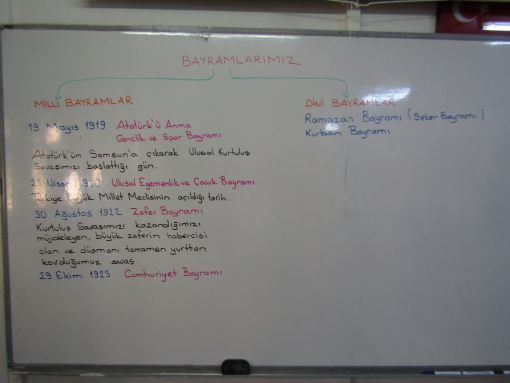 BAYRAMLARIMIZ
MİLLİ BAYRAMLAR
19 Mayıs 1919 Atatürk'ü Anma
Gençlik ve Spor Bayramı
Atatürk'ün Samsun'a çıkarak Ulusal Kurtuluş
Savaşımızı başlattığı gün.
23 Nisan Ulusal Egemenlik ve Çocuk Bayramı
Türkiye Büyük Millet Meclisinin açıldığı tarih.
30 Ağustos 1922 Zafer Bayramı
Kurtuluş Savaşımızı kazandığımızı
müjdeleyen, büyük zaferin habercisi
olan ve düşmanı tamamen yurttan
kovduğumuz savaş.
29 Ekim 1923 Cumhuriyet Bayramı
DİNİ BAYRAMLAR
Ramazan Bayramı (Şeker Bayramı)
Kurban Bayramı